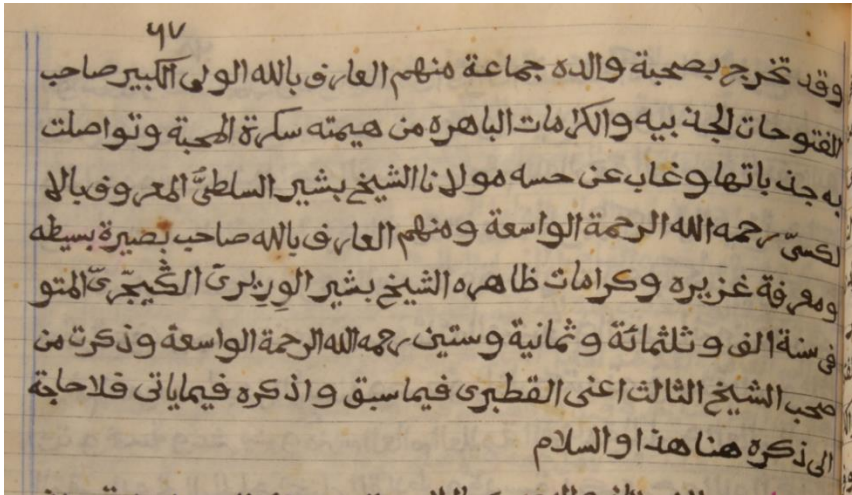 ٦٧
وقد تخرج بصحبة والده جماعة منهم العارف بالله الولى الكبير صاحب
الفتوحات الجذبيه والكرامات الباهره من هيمته سكرة المحبة وتواصلت
به جذباتها وغاب عن حسه مولانا الشيخ بشير السلطىّ المعروف بالا
لكسىّ رحمه الله الرحمة الواسعة ومنهم العارف بالله صاحب بصيرة بسيطه
ومعرفة غزيره وكرامات ظاهره الشيخ بشير الوِرِيرىّ الكَيجَرىّ المتو
فى سنة الف وثلثمائة وثمانية وستين رحمه الله الرحمة الواسعة وذكرت من
صحب الشيخ الثالث اعنى القطبرى فيما سبق واذكره فيما ياتى فلا حاجة
الى ذكره هنا هذا والسلام